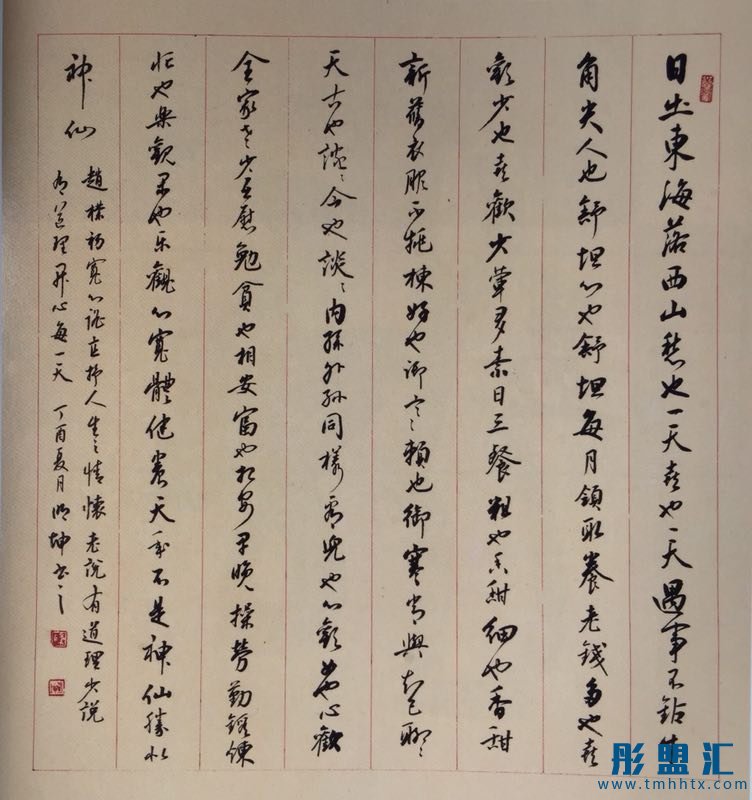 日出東海落西山愁也一天喜也一天遇事不鉆牛
角尖人也舒坦心也舒坦每月領取養老錢多也喜
歡少也喜歡少葷多素日三餐粗也香甜細也香甜
新舊衣服不挑揀好也御寒賴也御寒常與知己聊〻
天古也談〻今也談〻内孫外孫同樣看兒也心歡女也心歡
全家老少互慰勉貧也相安富也相安早晚操勞勤鍛煉
忙也樂觀閑也樂觀心寬體健養天年不是神仙勝似
神仙
趙樸初寬心謠直抒人生之情懷老說有道理少說
有道理開心每一天 丁酉夏月 坤書之
彤盟汇
www.tmhhtx.com